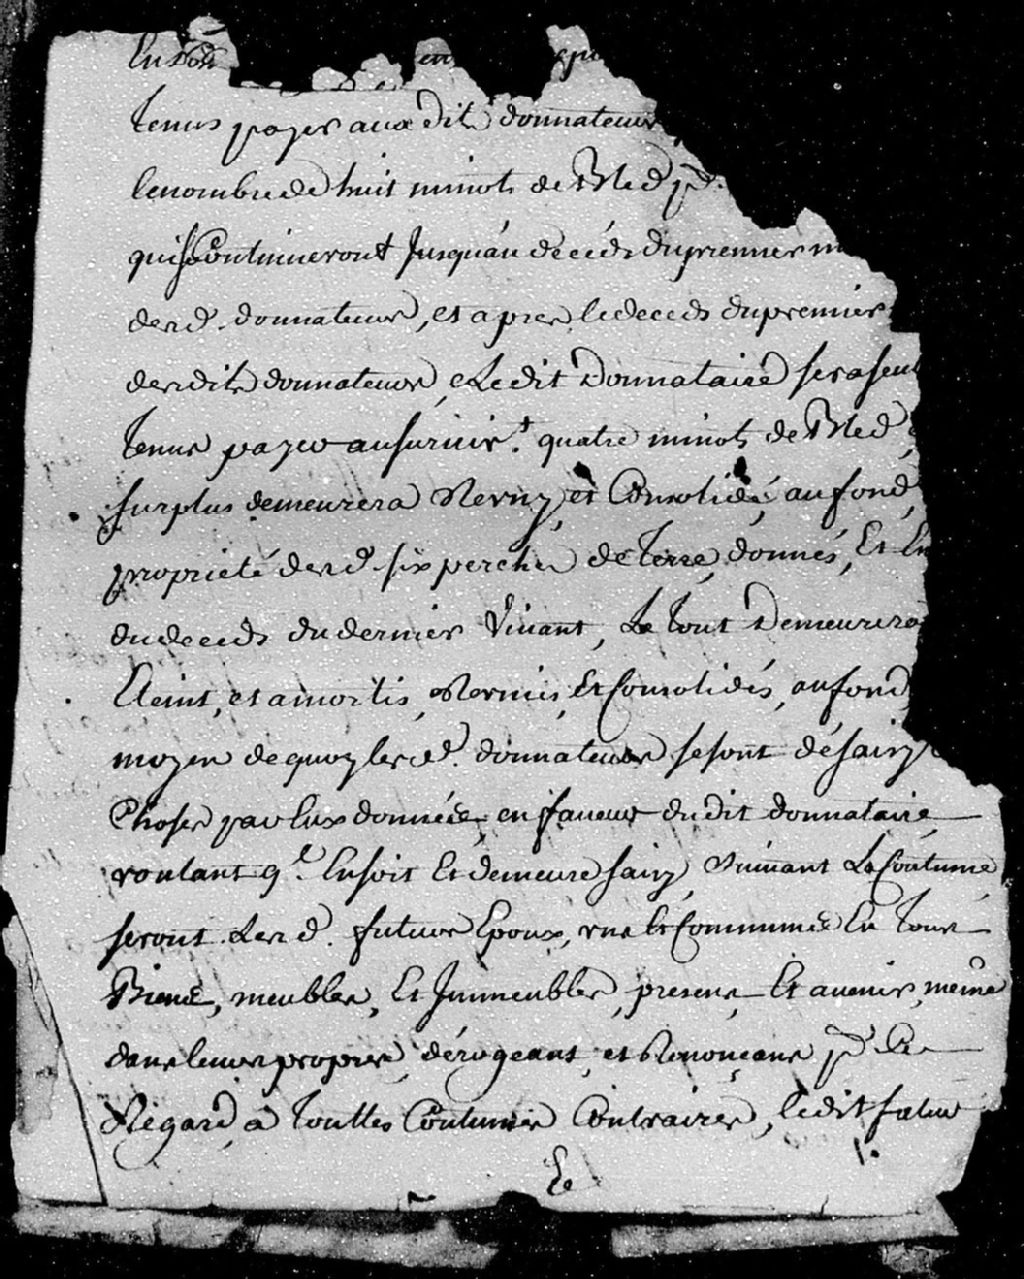 tenus payer aux dits donnateurs
le nombre de huit minots de Bled pr.
qui Continueront Jusqu'au décéds du premier m
desds. donnateurs, et apres le deceds du premier
desdits donnateurs, Le dit Donnataire sera seul
tenus payer au survivt. quatre minots de Bled
surplus demeurera Reuny, et Consolidé, au fond,
propriété desds. six perches de terre, donnés, Et En
du deceds du dernier Vivant, Le tout Demeurera
Eteint, et amortis, Reunis, Et Consolidés, au fond
moyen de quoy lesds. donnateurs se sont désaisy
Choses par Eux données, en faveur du dit donnataire
voulant ql. En soit Et demeure saisy, Suivant La Coutume
seront Lesds. futurs Epoux, uns Et Communs En tous
Biens, meubles, Et Immeubles, presens Et avenir, même
dans leurs propres, dérogeant, et Renonçans pr. Ce
Regard, à touttes Coutumes Contraires, ledit futur
Ee